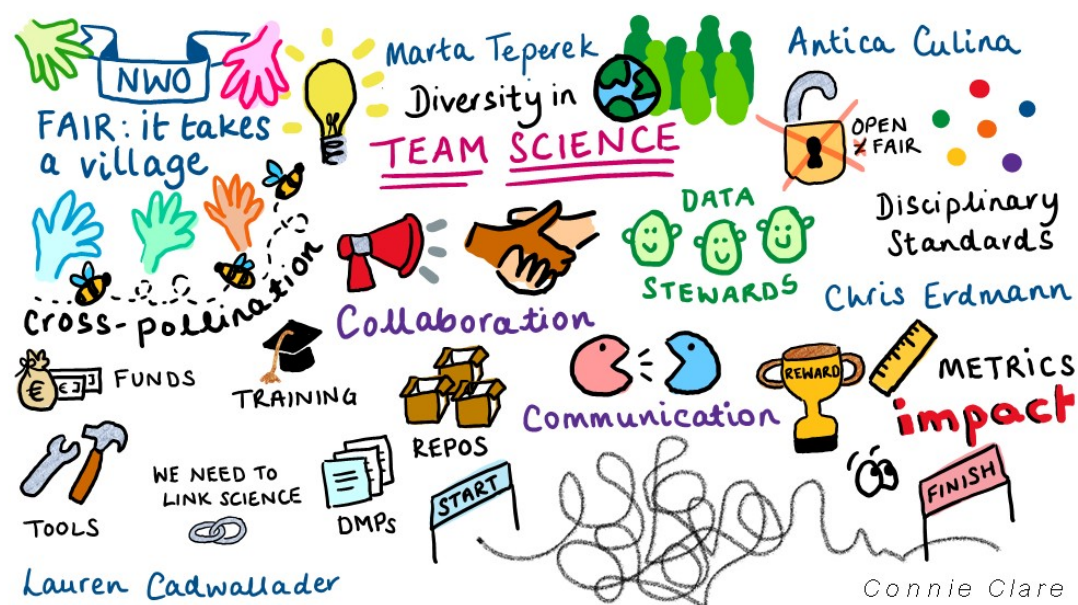 NWO
FAIR: it takes
a village
Marta Teperek
Diversity in
TEAM SCIENCE
Antica Culina
OPEN
≠ FAIR
Disciplinary
Standards
Cross-pollination
Collaboration
DATA
STEWARDS
Chris Erdmann
€
€
FUNDS
TRAINING
REPOS
Communication
REWARD
METRICS
impact
TOOLS
WE NEED TO
LINK SCIENCE
DMPs
START
FINISH
Lauren Cadwallader
Connie Clare